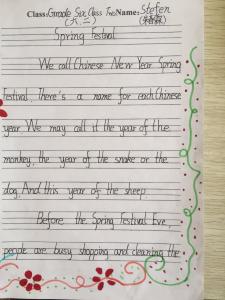 Class: Grade Six Class Two Name: Stefen
(六、二)
Spring Festival
We call Chinese New Year Spring
Festival. There's a name for each Chinese
year. We may call it the year of the
monkey, the year of the snake or the
dog. And this year of the sheep.
Before the Spring Festival Eve,
people are busy shopping and cleaning the